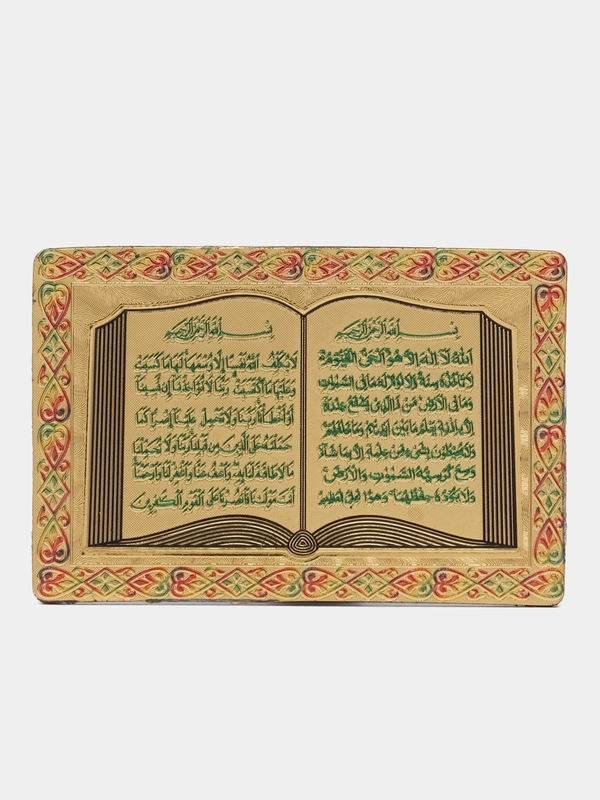 بسم الله الرحمن الرحيم
الله لا اله الا هو الحي القيوم
لا تاخذه سنة ولا نوم له ما في السموات
وما في الارض من ذا الذي يشفع عنده
الا باذنه يعلم ما بين ايديهم وما خلفهم
ولا يحيطون بشيء من علمه الا بما شاء
وسع كرسيه السموات والارض
ولا يؤده حفظهما وهو العلي العظيم
بسم الله الرحمن الرحيم
لا يكلف الله نفسا الا وسعها لها ما كسبت
وعليها ما اكتسبت ربنا لا تؤاخذنا ان نسينا
او اخطانا ربنا ولا تحمل علينا اصرا كما
حملته على الذين من قبلنا ربنا ولا تحملنا
ما لا طاقة لنا به واعف عنا واغفر لنا وارحمنا
انت مولانا فانصرنا على القوم الكافرين